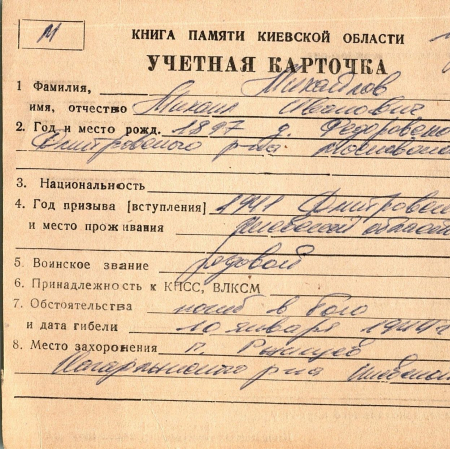 М
КНИГА ПАМЯТИ КИЕВСКОЙ ОБЛАСТИ
УЧЕТНАЯ КАРТОЧКА
1 Фамилия, Михайлов
имя, отчество Михаил Иванович
2. Год и место рожд. 1897 д. Федоровско
Дмитровского р-на Московско
3. Национальность
4. Год призыва [вступления] 1941 Дмитровски
и место проживания
5. Воинское звание рядовой
6. Принадлежность к КПСС, ВЛКСМ
7. Обстоятельства погиб в бою
и дата гибели 10 января 1944 г
8. Место захоронения п. Ржищев
Кагарлыкского р-на Киевск